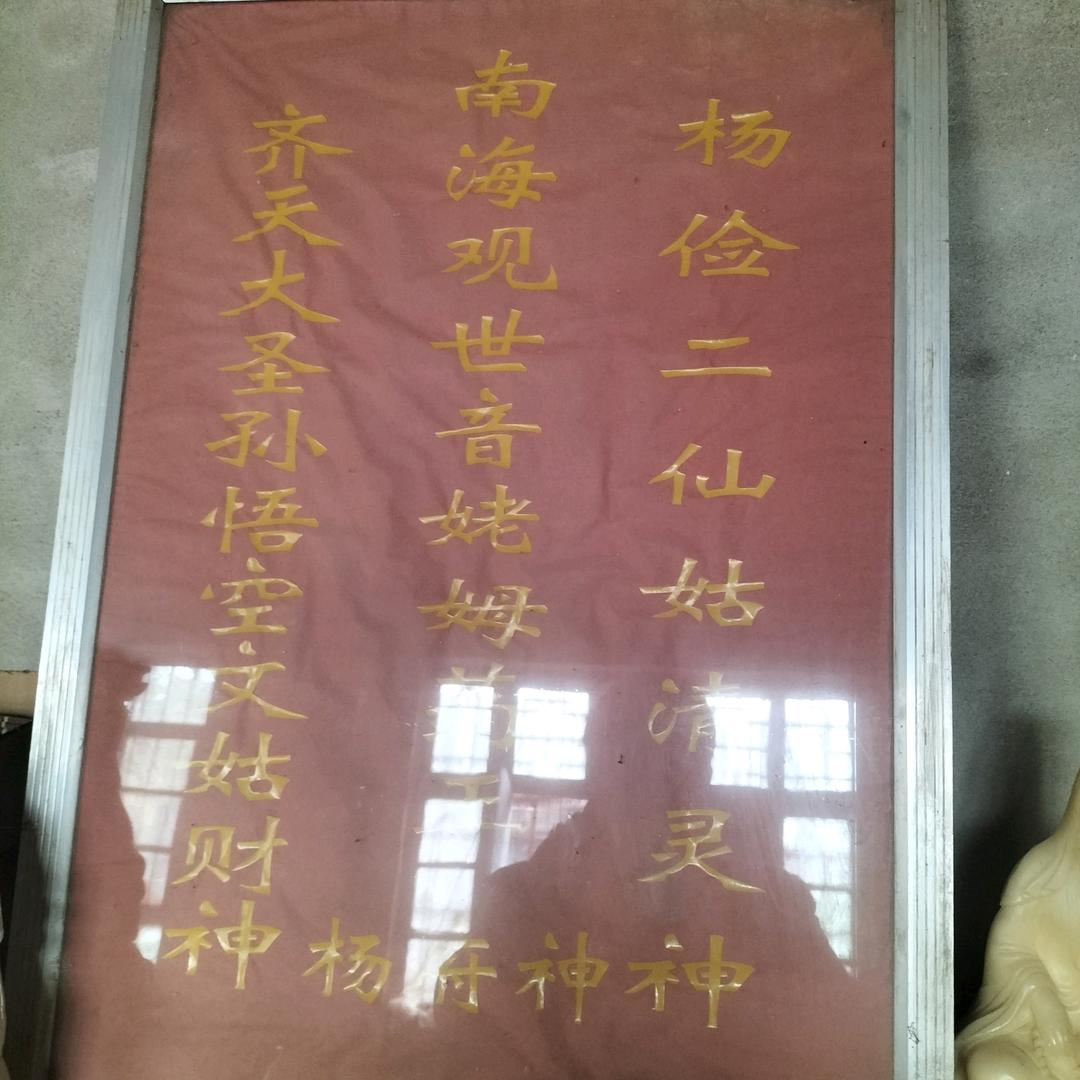 杨俭二仙姑清灵神
南海观世音姥姆药王
齐天大圣孙悟空文姑财神
杨府神